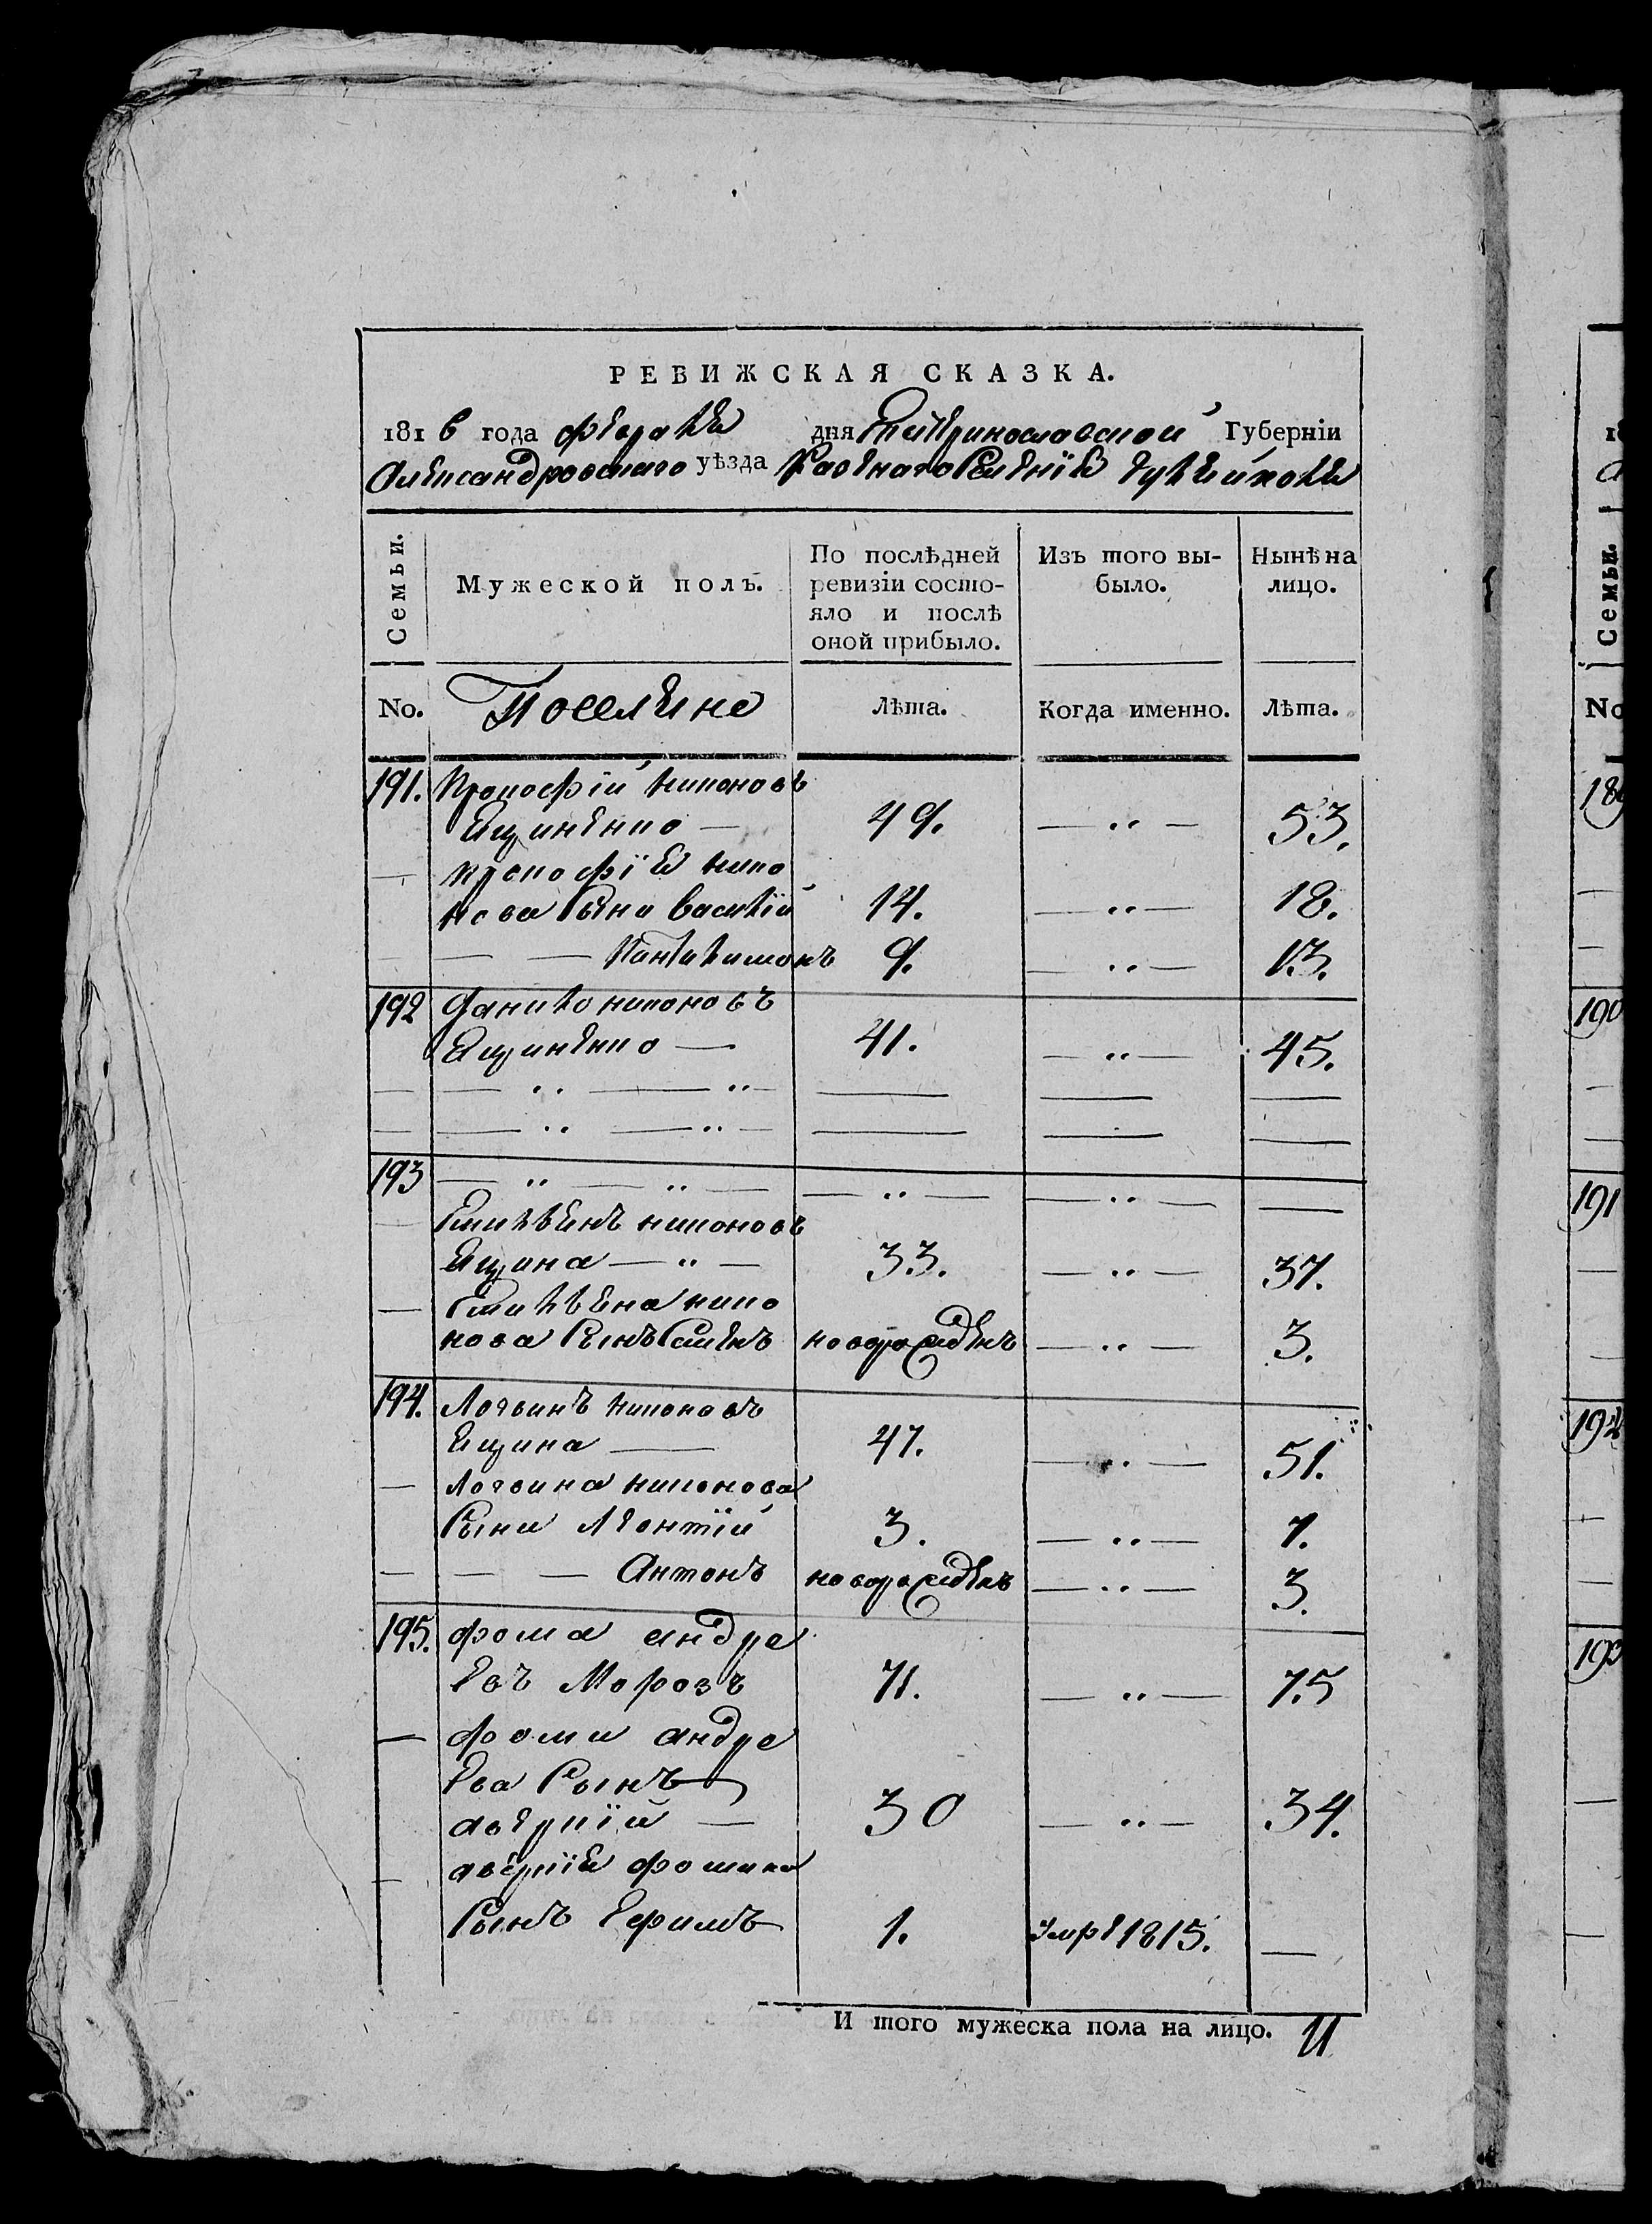 РЕВИЖСКАЯ СКАЗКА.
1816 года февраля дня Екатеринославской Губерніи
Александровскаго уѣзда Казенаго Селенія
Семьи.
Мужеской полъ.
По послѣдней
ревизіи состо-
яло и послѣ
оной прибыло.
Изъ того вы-
было.
Нынѣ на
лицо.
No. Поселяне Лѣта. Когда именно. Лѣта.
191. Прокофій никоновъ
Ященко — 49. — ,, — 53.
— прокофія нико
нова сыни василій 14. — ,, — 18.
— — — Пантилимонъ 9. — ,, — 13.
192 данило никоновъ
Ященко — 41. — ,, — 45.
193 — ,, — ,, — — ,, — — ,, — —
— никоновъ
Ящина — ,, — 33. — ,, — 37.
— нико
нова сынъ новорожденъ — ,, — 3.
194. Логвинъ никоновъ
Ящина — 47. — ,, — 51.
— Логвина никонова
сыни Леонтій 3. — ,, — 7.
— — — Антонъ новорожденъ — ,, — 3.
195. фома андре
евъ Морозъ 71. — ,, — 75
— фоми андре
ева сынъ
аверкій — 30 — ,, — 34.
— аверкія фомина
сынъ Ефимъ 1. умре 1815. —
И того мужеска пола на лицо. 11
Семьи.
No
189
190
191
192
193